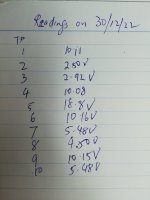 Readings on 30/12/22
TP
1 10.11
2 2.50V
3 2.92V
4 10.08
5 18.8V
6 10.16V
7 5.48V
8 9.50V
9 10.15V
10 5.48V